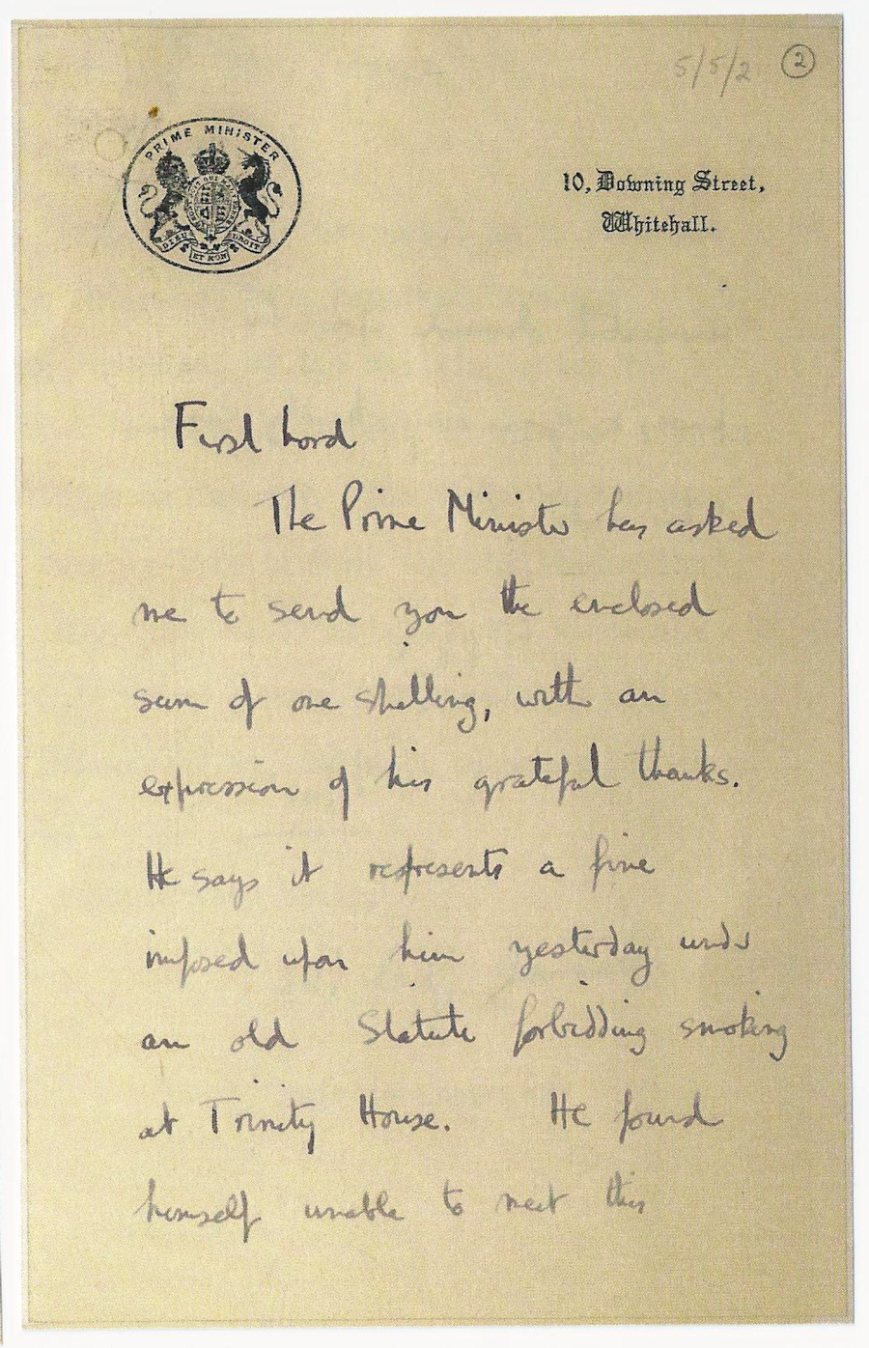 5/5/2 2
PRIME MINISTER
DIEU ET MON DROIT
10, Downing Street,
Whitehall.
First Lord
The Prime Minister has asked
me to send you the enclosed
sum of one shilling, with an
expression of his grateful thanks.
He says it represents a fine
imposed upon him yesterday under
an old Statute forbidding smoking
at Trinity House. He found
himself unable to meet this